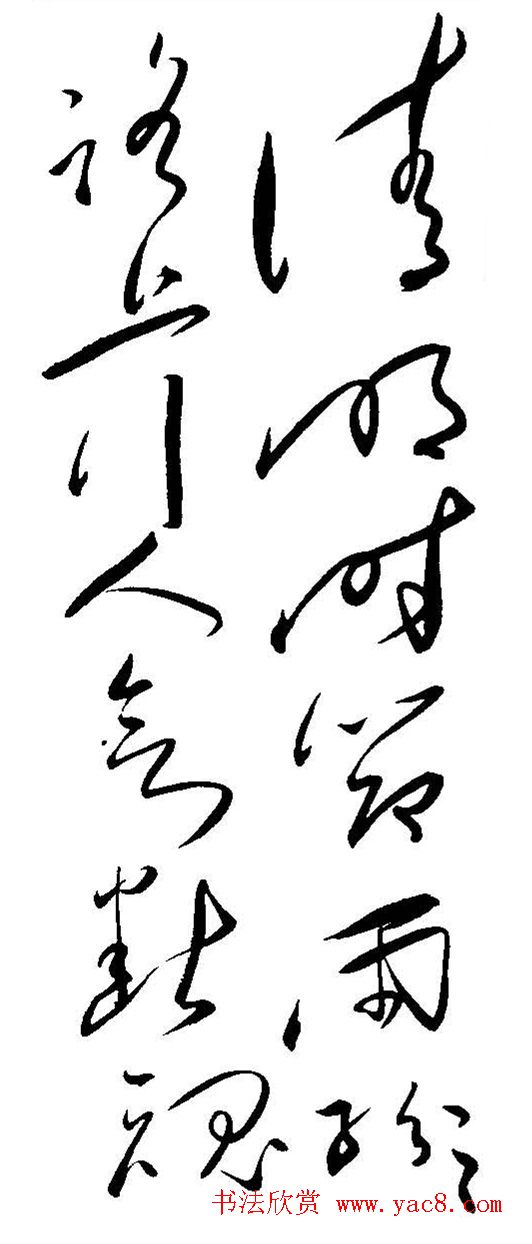 清明時節雨紛紛
路上行人欲斷魂
书法欣赏 www.yac8.com